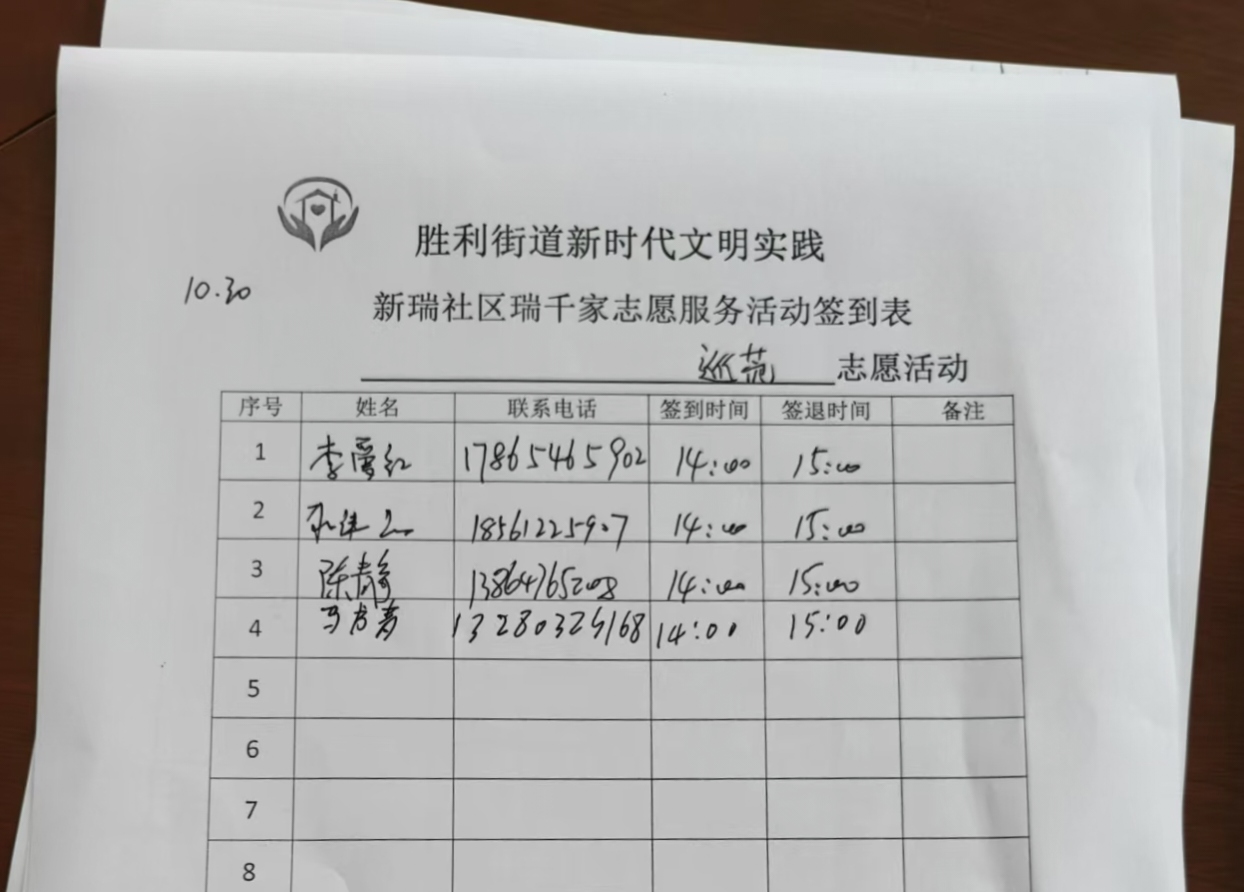 胜利街道新时代文明实践
10.30
新瑞社区瑞千家志愿服务活动签到表
巡苑 志愿活动
序号 姓名 联系电话 签到时间 签退时间 备注
1 李爱红 17865465902 14:00 15:00
2 18561225907 14:00 15:00
3 陈静 13864765208 14:00 15:00
4 马 13280325168 14:00 15:00
5
6
7
8